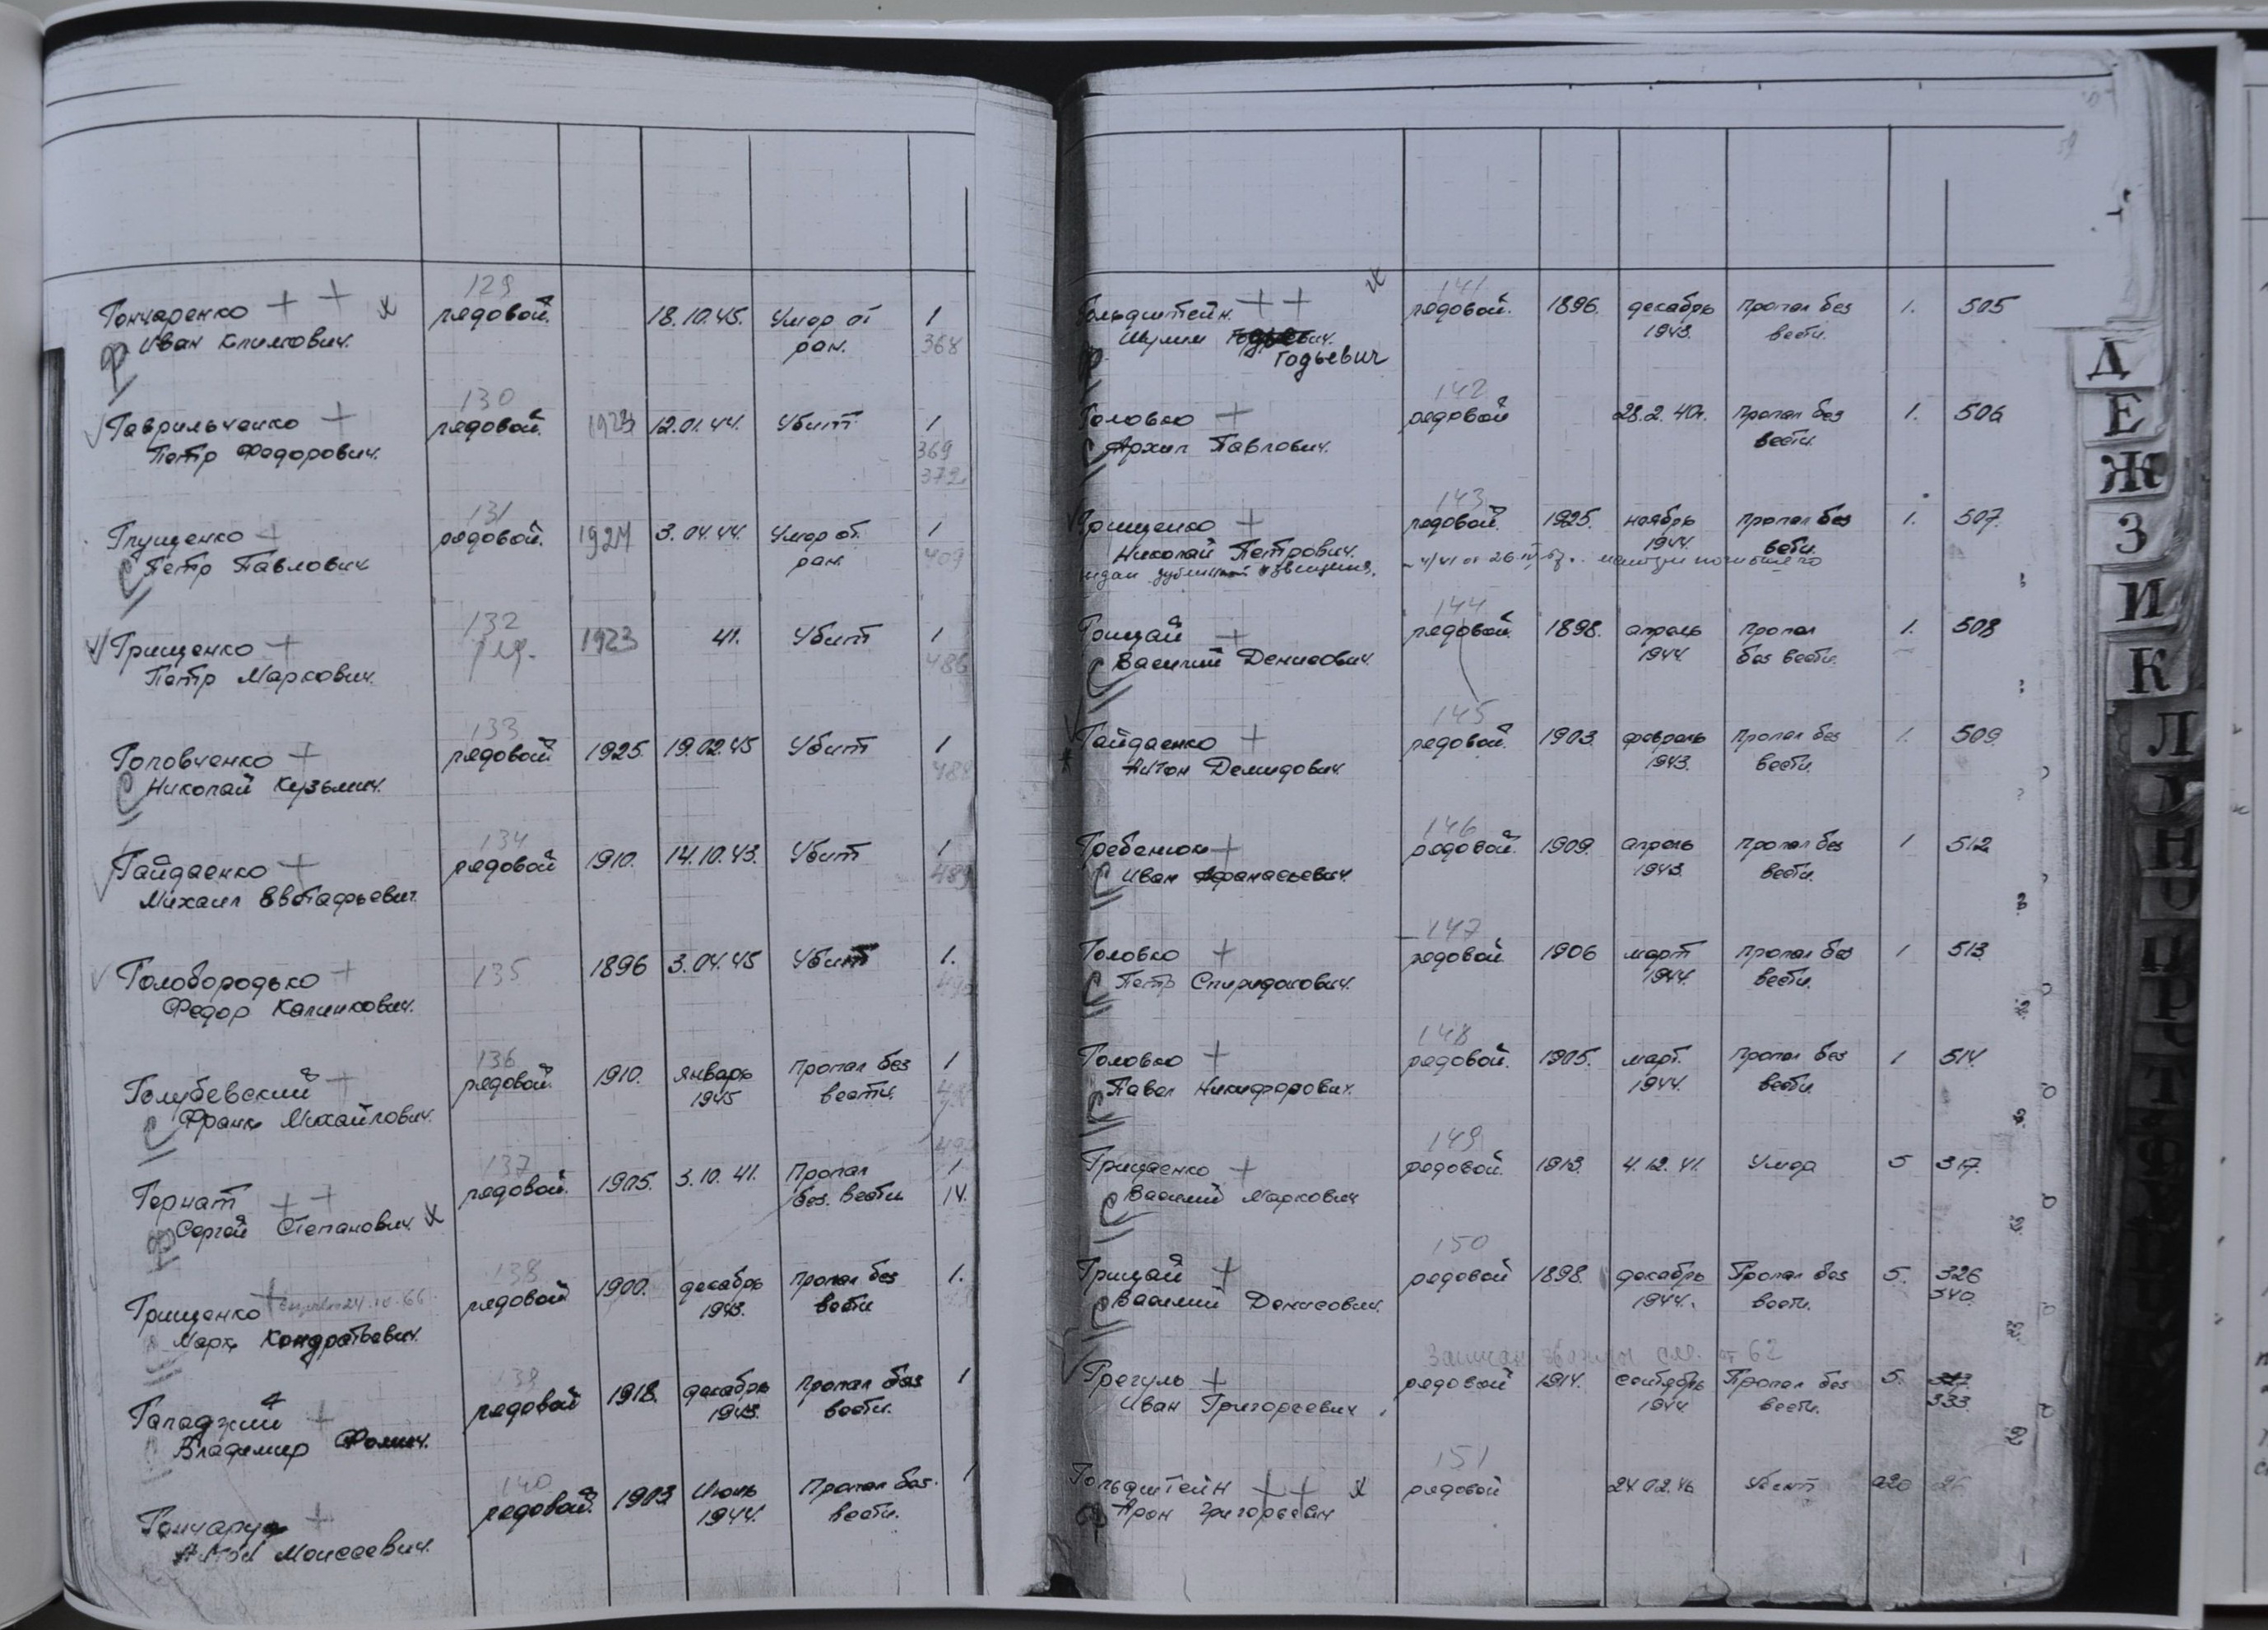 129
Гончаренко + + х рядовой. 18.10.45. Умер от 1
Р Иван Климович. ран. 368
130
Гаврильченко + рядовой. 1923 12.01.44. Убит 1
Петр Федорович. 369
372
131
Глущенко + рядовой. 1924 3.04.44. Умер от 1
С Петр Павлович ран. 409
132
Грищенко + ряд. 1923 41. Убит 1
Петр Маркович. 486
133
Головченко + рядовой 1925. 19.02.45 Убит 1
С Николай Кузьмич. 488
134
Гайдаенко + рядовой 1910. 14.10.43. Убит 1
Михаил Евстафьевич. 489
Голобородько + 135 1896 3.04.45 Убит 1.
Федор Калинкович.
136
Голубевский + рядовой. 1910. январь Пропал без 1
С Франц Михайлович. 1945 вести.
137
Гернат + + рядовой. 1905. 3.10.41. Пропал 1
Р Сергей Степанович х без. вести 14.
138
Грищенко + 24.10.66. рядовой 1900. декабрь Пропал без 1.
С Марк Кондратьевич. 1943. вести
139
Гападжий + рядовой 1918. декабрь Пропал без 1
С Владимир Фомич. 1943. вести.
140
Гончарук + рядовой. 1903 Июнь Пропал без 1
Антон Моисеевич. 1944. вести.
141
Гольдштейн. + + х рядовой. 1896. декабрь Пропал без 1. 505
Шулим 1943. вести.
Годьевич
142
Головко + рядовой 28.2.40г. Пропал без 1. 506
С Архип Павлович. вести.
143
Грищенко + рядовой. 1925. ноябрь Пропал без 1. 507.
Николай Петрович. 1944. вести.
144
Грицай + рядовой. 1898. апрель Пропал 1. 508
С Василий Денисович. 1944. без вести.
145
Гайдаенко + рядовой. 1903. февраль Пропал без 1. 509.
Антон Демидович. 1943. вести.
146
Гребенюк + рядовой. 1909. апрель Пропал без 1 512
С Иван Афанасьевич. 1943. вести.
147
Головко + рядовой 1906 март Пропал без 1 513
С Петр Спиридонович. 1944. вести.
148
Головко + рядовой. 1905. март. Пропал без 1 514.
С Павел Никифорович. 1944. вести.
149
Грищенко + рядовой. 1913. 4.12.41. Умер 5 317.
С Василий Маркович
150
Грицай + рядовой 1898. декабрь Пропал без 5. 326
С Василий Денисович. 1944. вести. 340.
Записан дважды см. 62
Грегуль + рядовой 1914. сентябрь Пропал без 5.
Иван Григорьевич. 1944 вести. 333.
151
Гольдштейн + + х рядовой 24.02.46 Убит а20 26
Арон Григорьевич
Д
Е
Ж
З
И
К
Л
Н
П
Р
Т